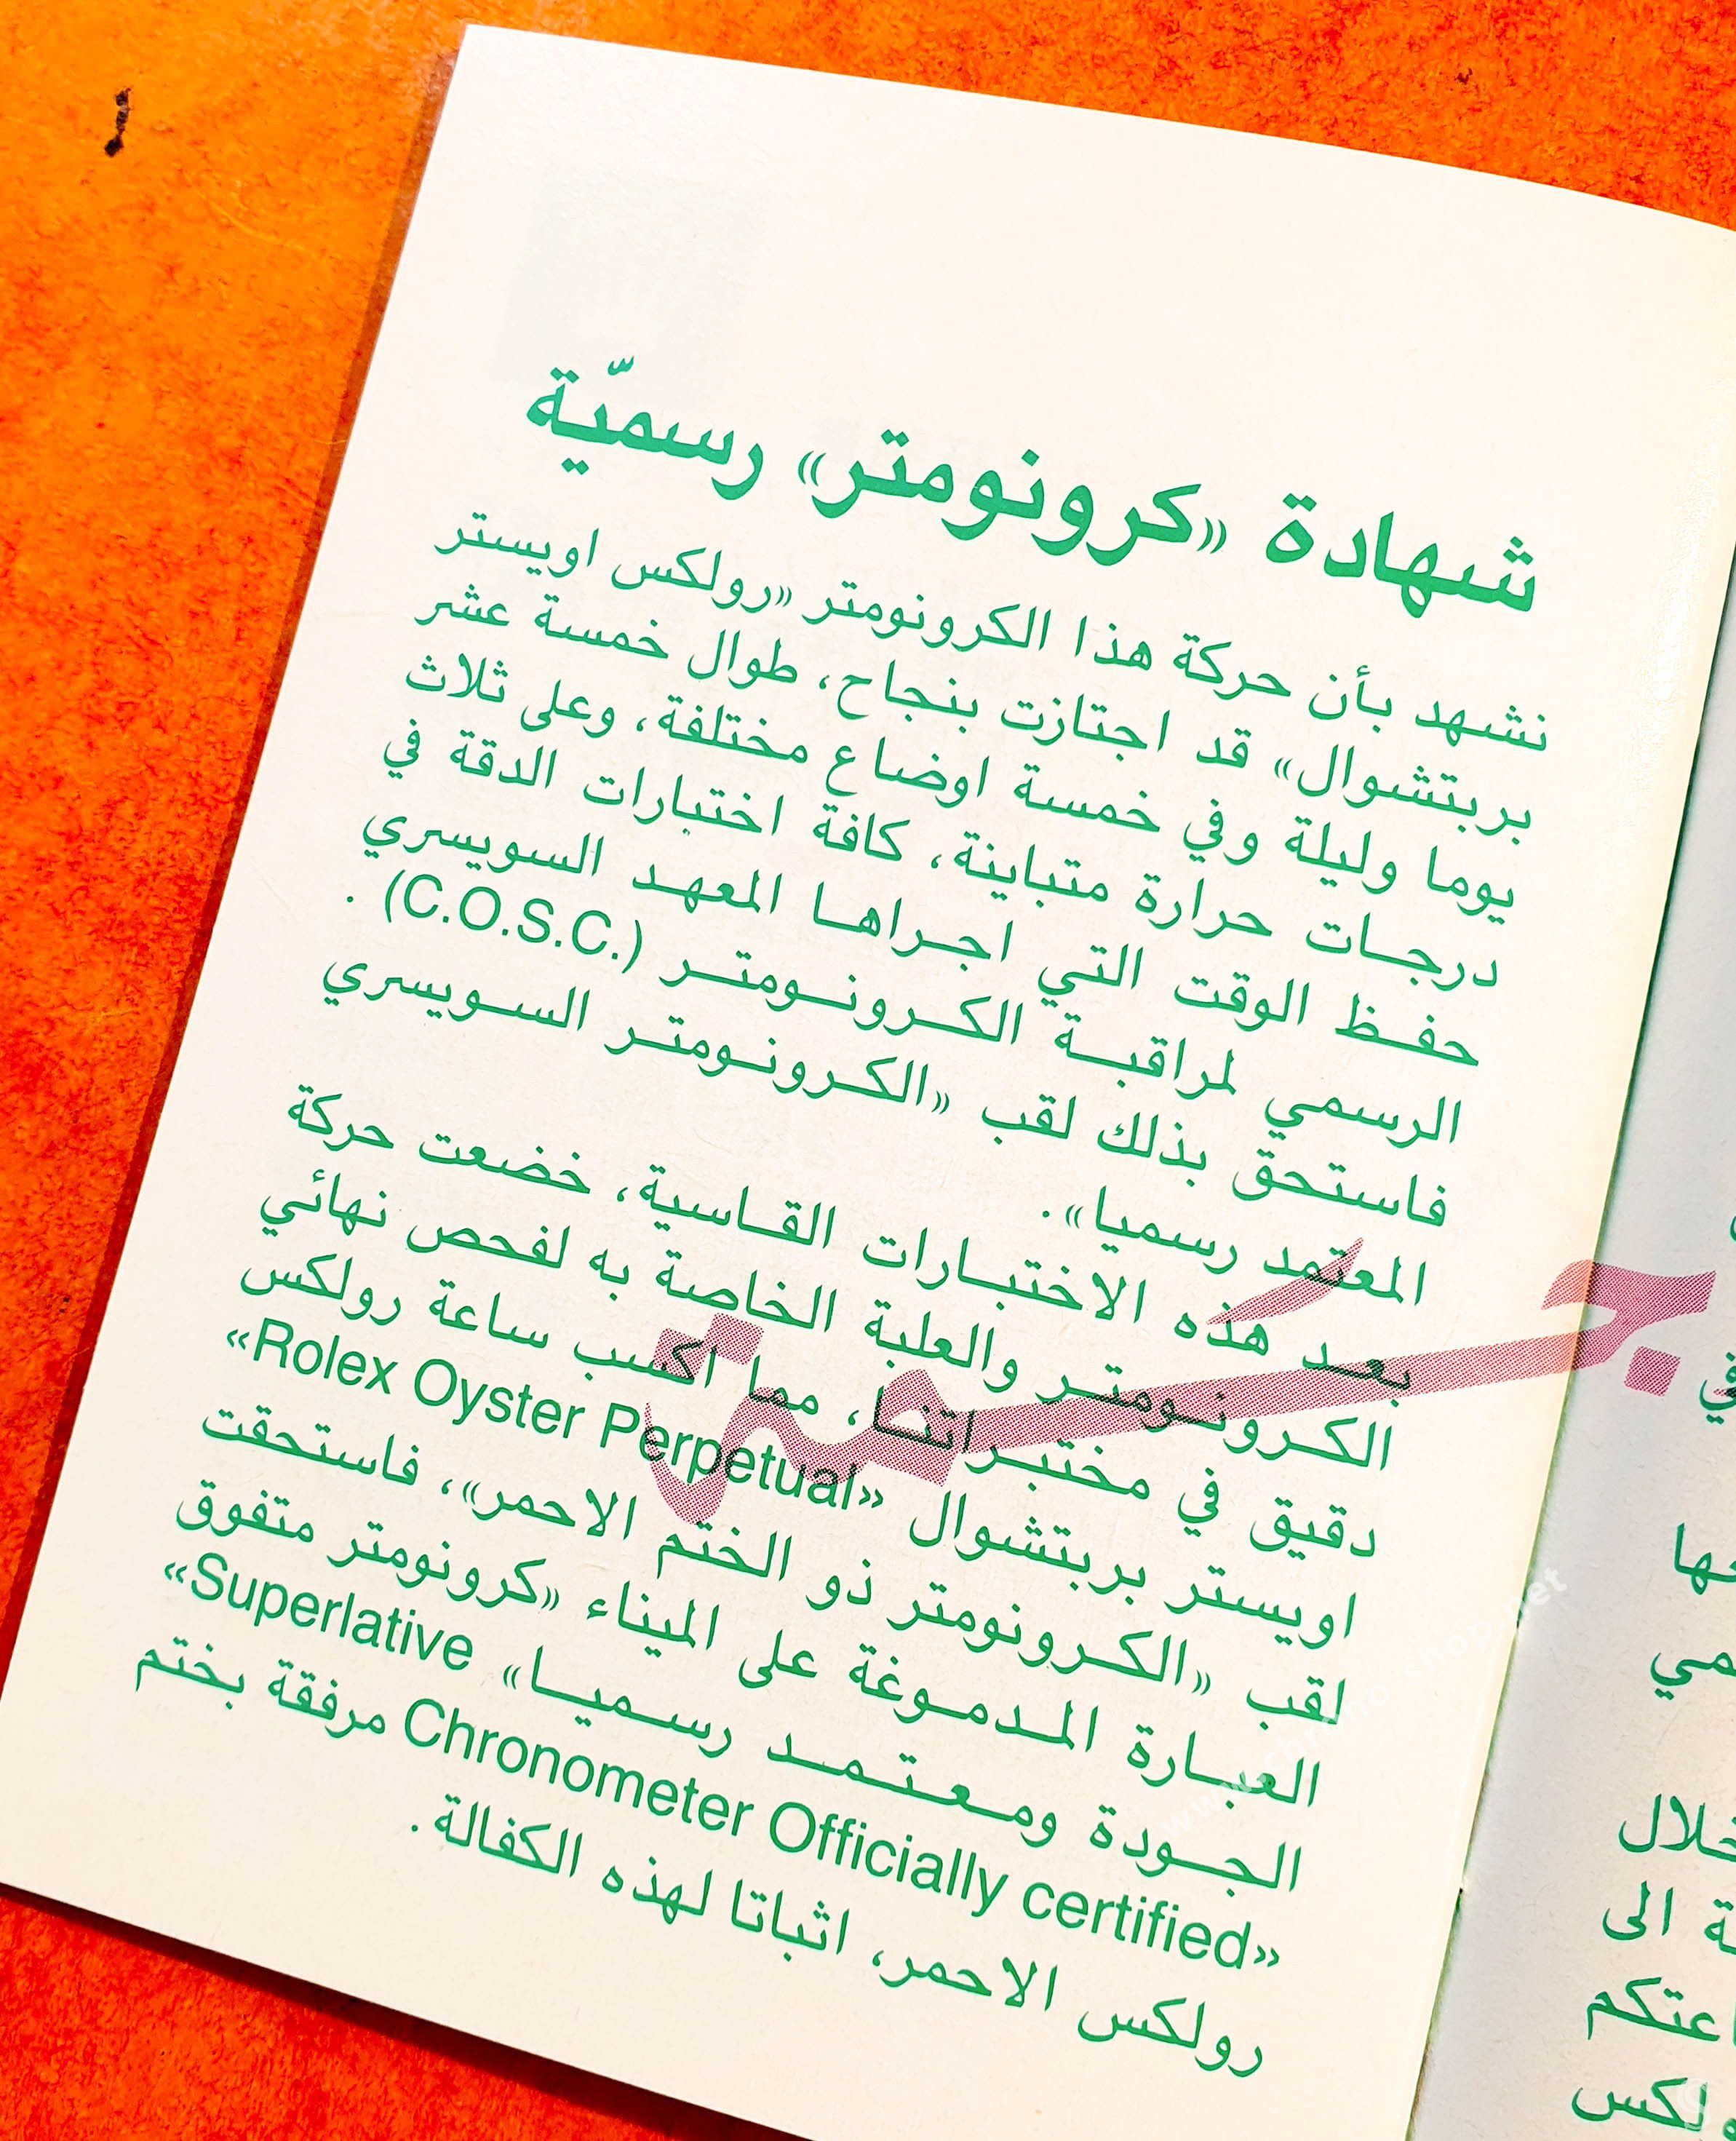 شهادة «كرونومتر» رسميّة
نشهد بأن حركة هذا الكرونومتر «رولكس اويستر
بربتشوال» قد اجتازت بنجاح، طوال خمسة عشر
يوما وليلة وفي خمسة اوضاع مختلفة، وعلى ثلاث
درجات حرارة متباينة، كافة اختبارات الدقة في
حفظ الوقت التي اجراها المعهد السويسري
الرسمي لمراقبة الكرونومتر (C.O.S.C.) .
فاستحق بذلك لقب «الكرونومتر السويسري
المعتمد رسميا».
بعد هذه الاختبارات القاسية، خضعت حركة
الكرونومتر والعلبة الخاصة به لفحص نهائي
دقيق في مختبراتنا، مما اكسب ساعة رولكس
اويستر بربتشوال «Rolex Oyster Perpetual»
لقب «الكرونومتر ذو الختم الاحمر»، فاستحقت
العبارة المدموغة على الميناء «كرونومتر متفوق
الجودة ومعتمد رسميا» «Superlative
Chronometer Officially certified» مرفقة بختم
رولكس الاحمر، اثباتا لهذه الكفالة.
في
الى